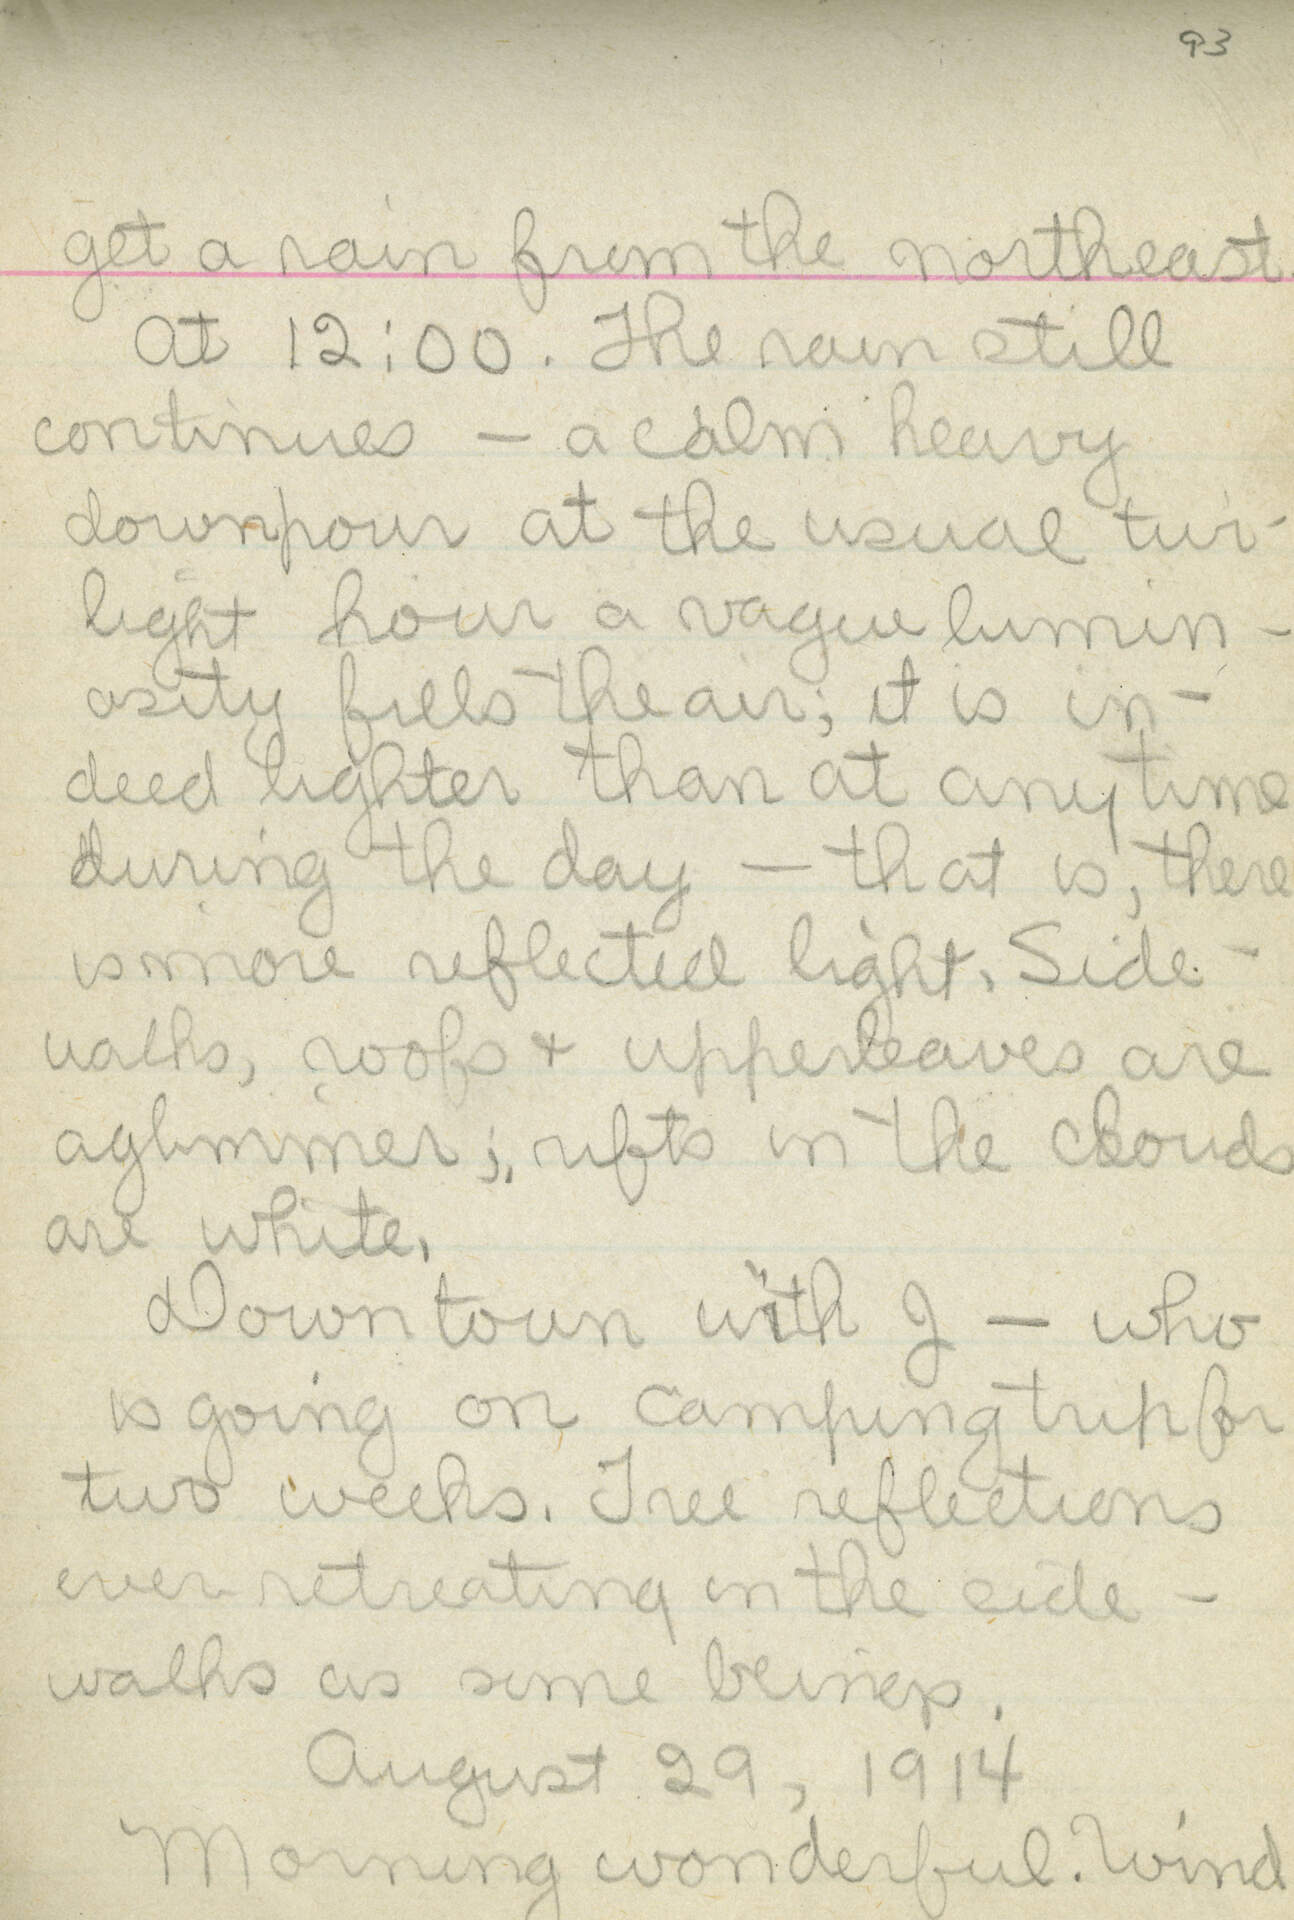 93
get a rain from the northeast.
At 12:00. The rain still
continues – a calm heavy
downpour at the usual twi-
light hour a vague lumin-
osity fills the air; it is in-
deed lighter than at anytime
during the day – that is, there
is more reflected light. Side-
walks, roofs + upperleaves are
aglimmer; rifts in the clouds
are white.
Downtown with J – who
is going on camping trip for
two weeks. Tree reflections
ever retreating in the side-
walks as some beings.
August 29, 1914
Morning wonderful. Wind